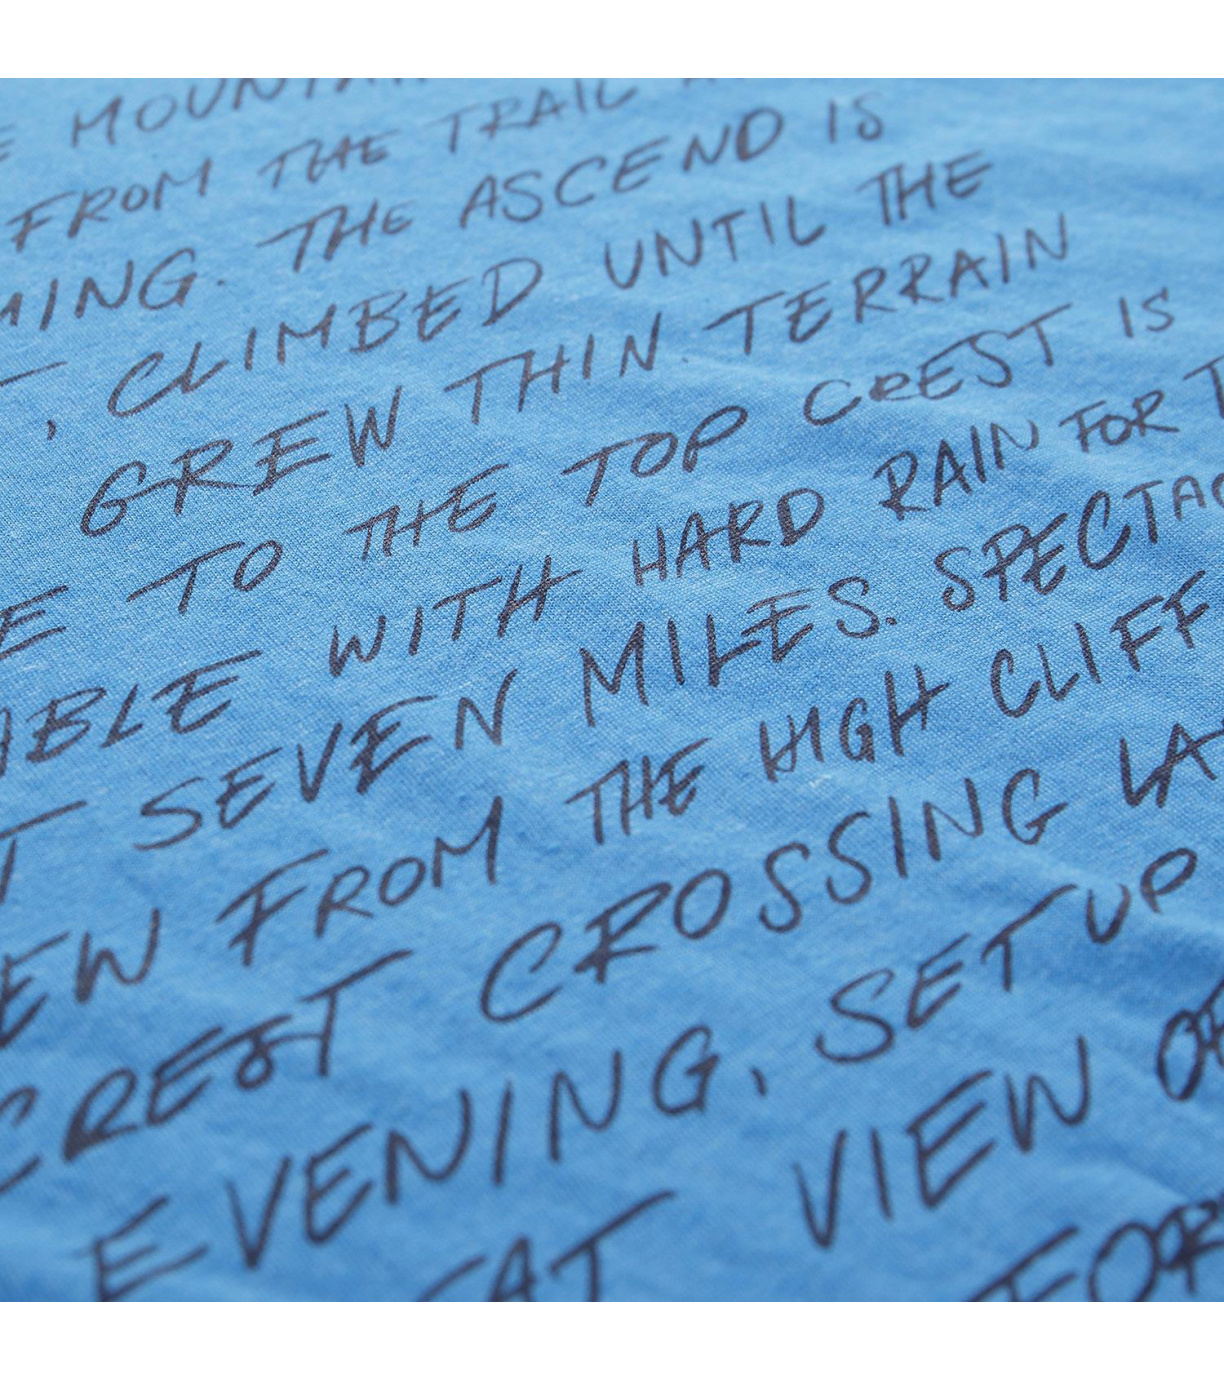 MOUNTAI
FROM THE TRAIL
MING. THE ASCEND IS
T, CLIMBED UNTIL THE
GREW THIN. TERRAIN
E TO THE TOP CREST IS
ABLE WITH HARD RAIN FOR T
T SEVEN MILES. SPECTAC
EW FROM THE HIGH CLIFF
CREST CROSSING LA
EVENING, SET UP
EAT VIEW OF
FOR